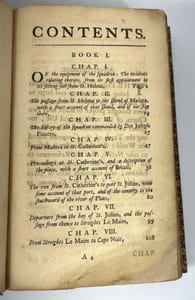 CONTENTS.
BOOK I.
CHAP. I.
OF the equipment of the squadron: The incidents
relating thereto, from its first appointment to
its setting sail from St. Helens, Page 1
CHAP. II.
The passage from St. Helens to the Island of Madera,
with a short account of that Island, and of our stay
there,
CHAP. III.
The history of the squadron commanded by Don Joseph
Pizarro, 27
CHAP. IV.
From Madera to St. Catherine's,
CHAP. V.
Proceedings at St. Catherine's, and a description of
the place, with a short account of Brazil,
CHAP. VI.
The run from St. Catherine's to port St. Julian, with
some account of that port, and of the country to the
southward of the river of Plate,
CHAP. VII.
Departure from the bay of St. Julian, and the pas-
sage from thence to Streights Le Maire, 99
CHAP. VIII.
From Streights Le Maire to Cape Noir, 108
A 4
CHAP